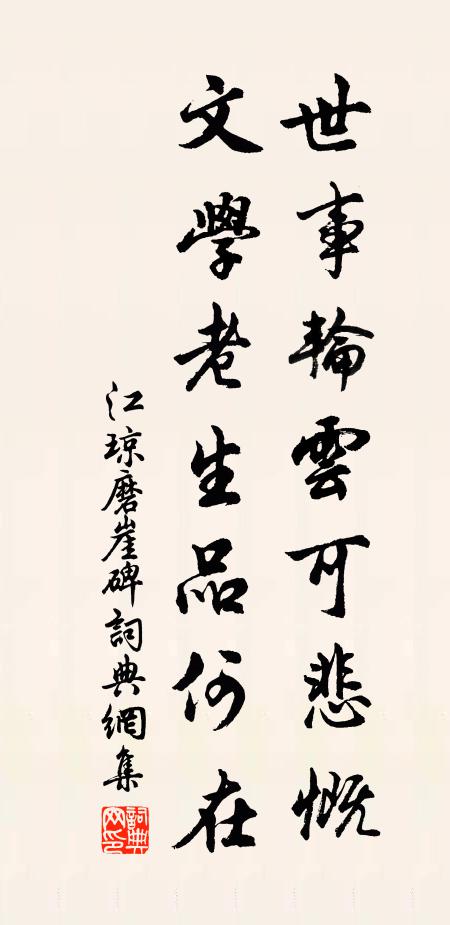 世事輪雲可悲慨
文學老生品何在
江琼磨崖碑詞典網集
詞典網印